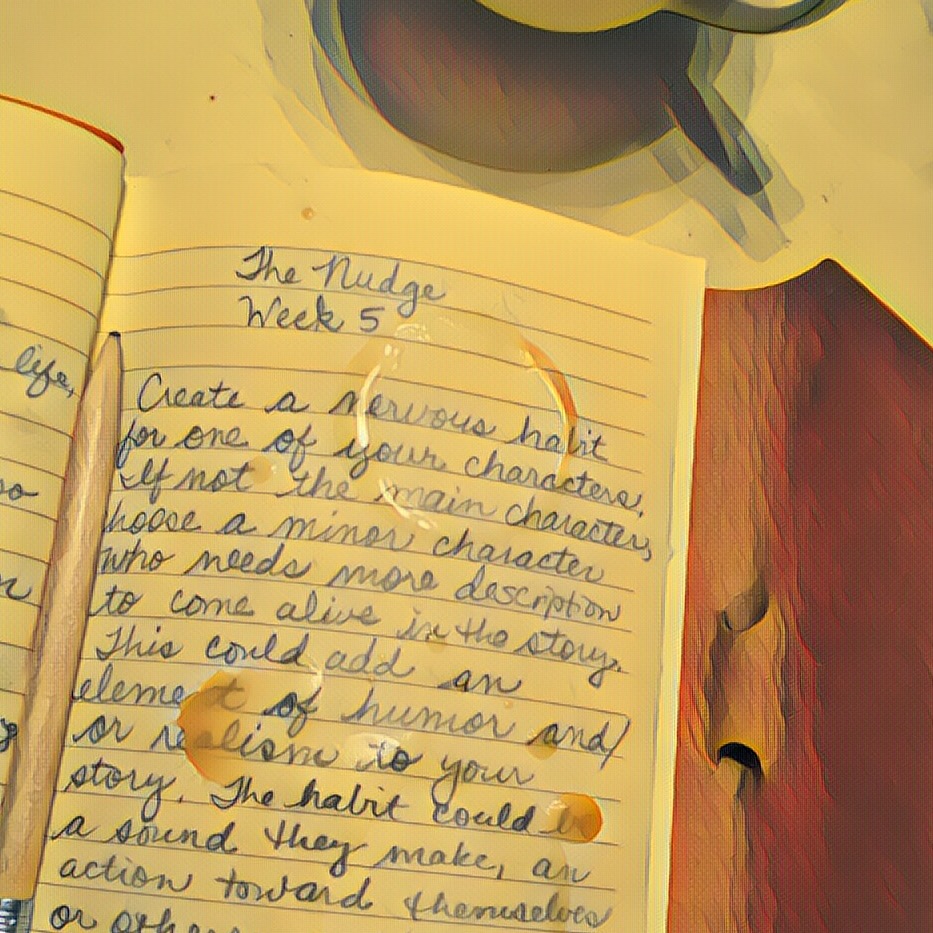 life,
so
The Nudge
Week 5
Create a nervous habit
for one of your characters.
If not the main character,
choose a minor character
who needs more description
to come alive in the story.
This could add an
element of humor and/
or realism to your
story. The habit could be
a sound they make, an
action toward themselves
or others